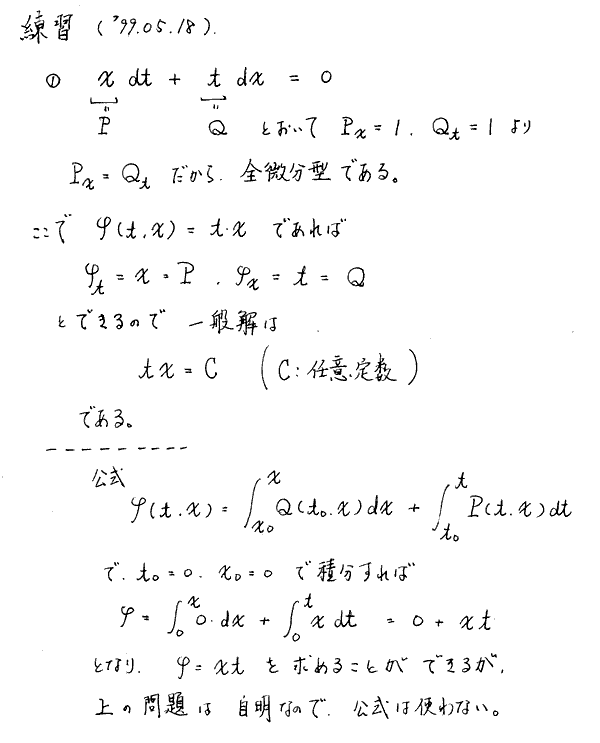 練習 ('99.05.18).
① x dt + t dx = 0
P Q とおいて Px = 1. Qt = 1 より
Px = Qt だから. 全微分型である。
ここで φ(t,x) = t·x であれば
φt = x = P . φx = t = Q
とできるので 一般解は
tx = C (C: 任意定数)
である。
---------
公式
φ(t.x) = ∫_{x0}^{x} Q(t0.x)dx + ∫_{t0}^{t} P(t.x)dt
で. t0 = 0. x0 = 0 で積分すれば
φ = ∫_0^x 0·dx + ∫_0^t x dt = 0 + xt
となり. φ = xt を求めることができるが,
上の問題は 自明なので. 公式は使わない。